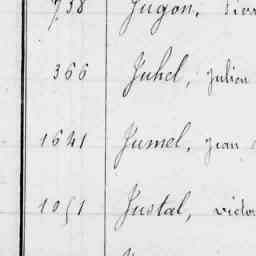 738 Jugon,
366 Juhel, Julien
1641 Jumel, Jean
1051 Justal, Victor